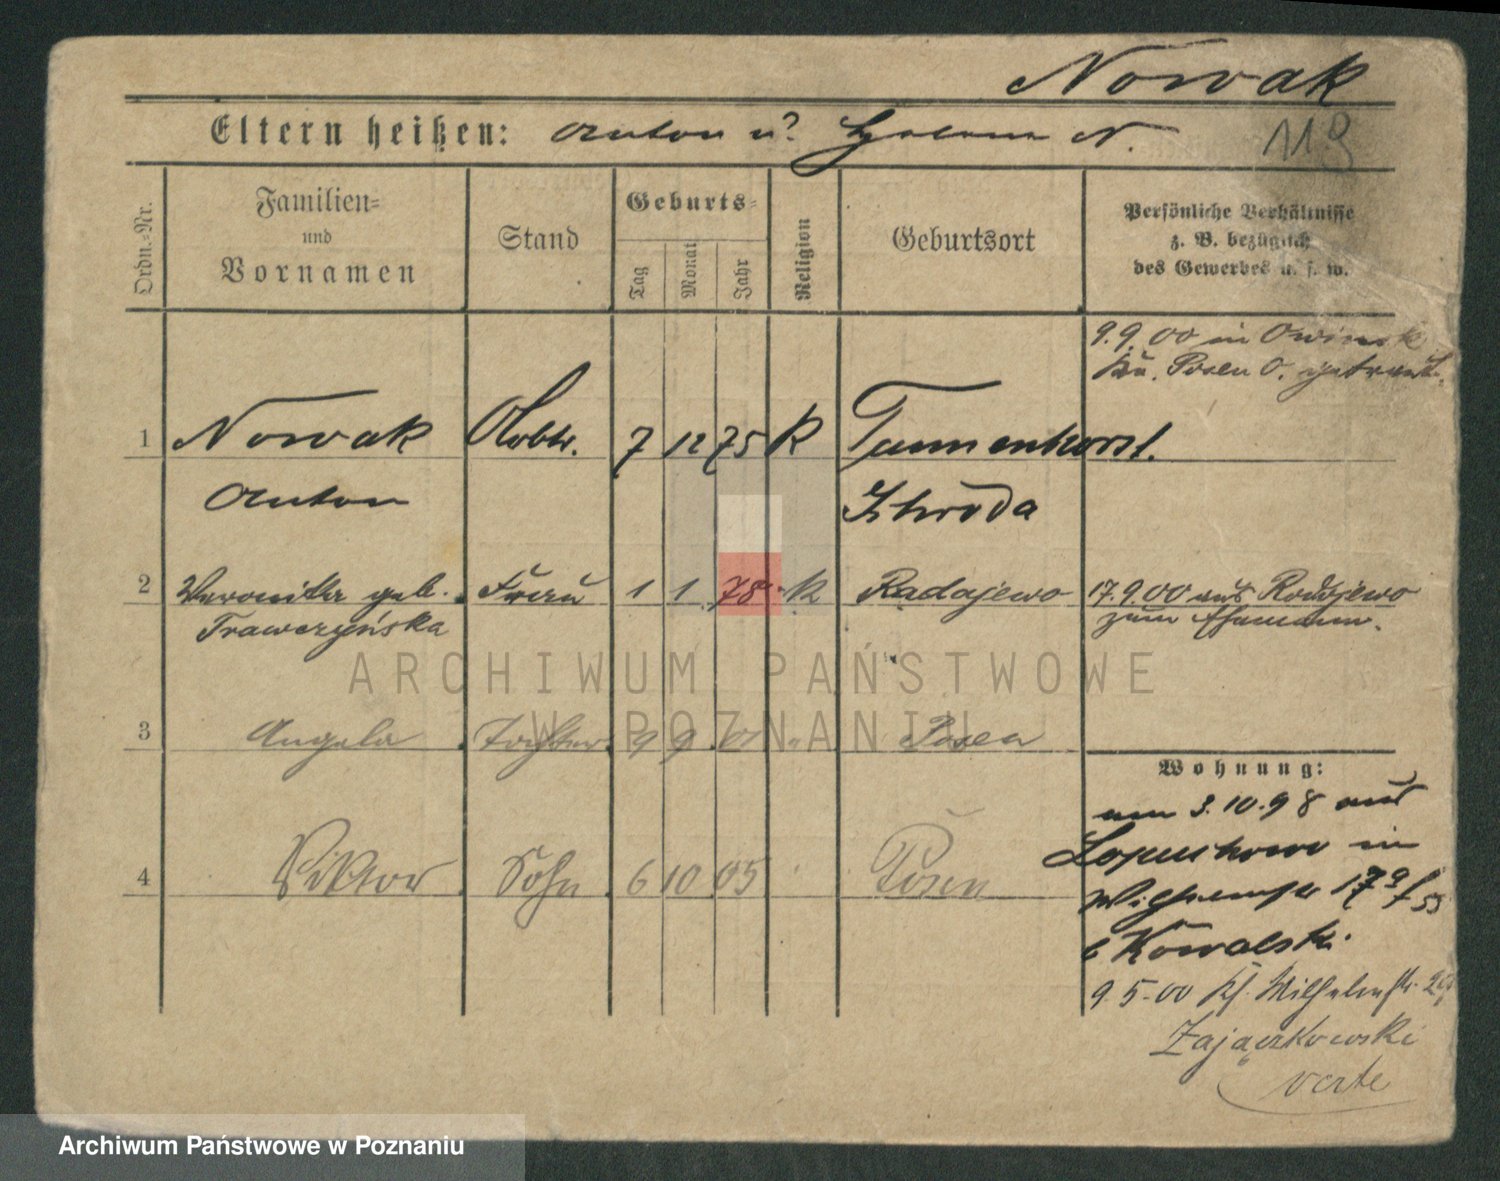 Nowak
Eltern heißen: Anton u. Helene N.
119
Ordn.-Nr.
Familien-
und
Vornamen
Stand
Geburts-
Tag
Monat
Jahr
Religion
Geburtsort
Persönliche Verhältnisse
z. B. bezüglich
des Gewerbes u. s. w.
9.9.00 in Owinsk
Kr. Posen O. getraut.
1 Nowak 7 12 75 K Tannenhorst.
Anton Schroda
2 Veronika geb. Frau 1 1 78 K Radajewo 17.9.00 aus Radojewo
Trawczyńska zum Ehemann.
3 Angela Tochter 9 9 Posen
4 Viktor Sohn 6 10 05 Posen
Wohnung:
am 3.10.98 aus
in
Wilhelmstr 17
b Kowalski.
9.5.00 Kl. Wilhelmstr.
Zajączkowski
verte
ARCHIWUM PAŃSTWOWE
W POZNANIU
Archiwum Państwowe w Poznaniu